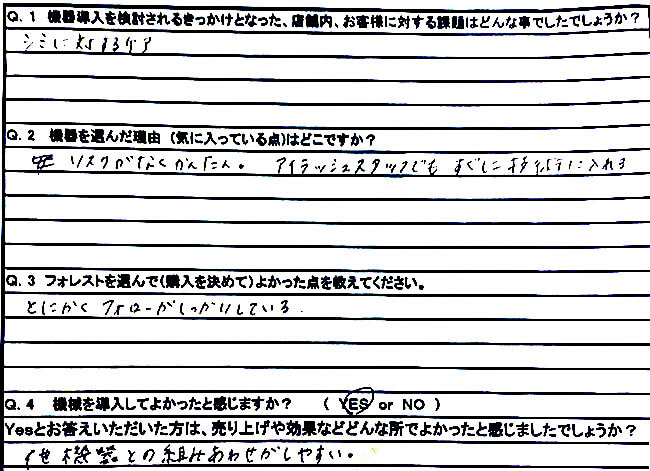 Q. 1 機器導入を検討されるきっかけとなった、店舗内、お客様に対する課題はどんな事でしたでしょうか?
シミに対するケア
Q. 2 機器を選んだ理由(気に入っている点)はどこですか?
リスクがなくかんたん。 アイラッシュスタッフでも すぐに 入れる
Q. 3 フォレストを選んで(購入を決めて)よかった点を教えてください。
とにかくフォローがしっかりしている.
Q. 4 機械を導入してよかったと感じますか? ( YES or NO )
Yesとお答えいただいた方は、売り上げや効果などどんな所でよかったと感じましたでしょうか?
他機器との組みあわせがしやすい。